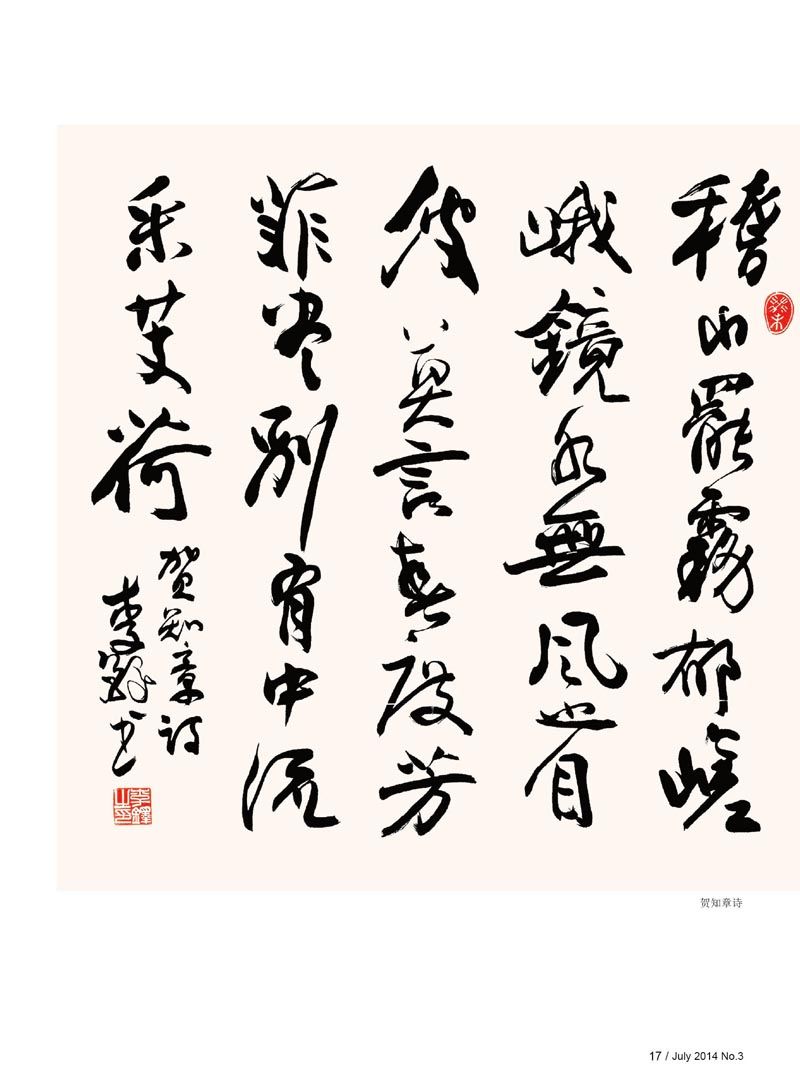 稽山罷霧郁嵯
峨鏡水無風也自
波莫言春度芳
菲尽别有中流
采芰荷
贺知章诗
李鐸书
李鐸
贺知章诗
17 / July 2014 No.3